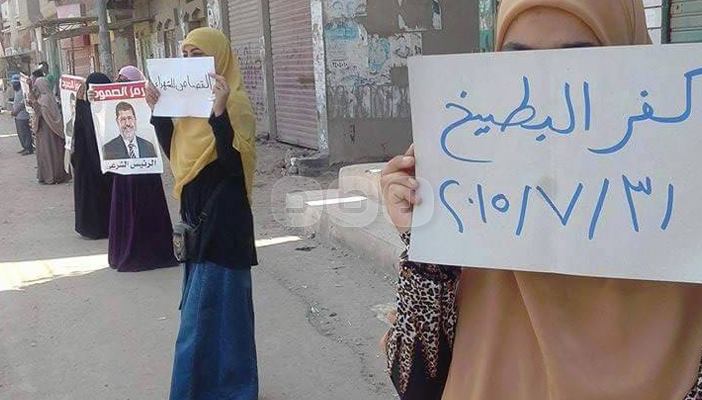 كفر البطيخ
٢٠١٥/٧/٣١
القصاص للشهداء
رمز الصمود
الرئيس الشرعى